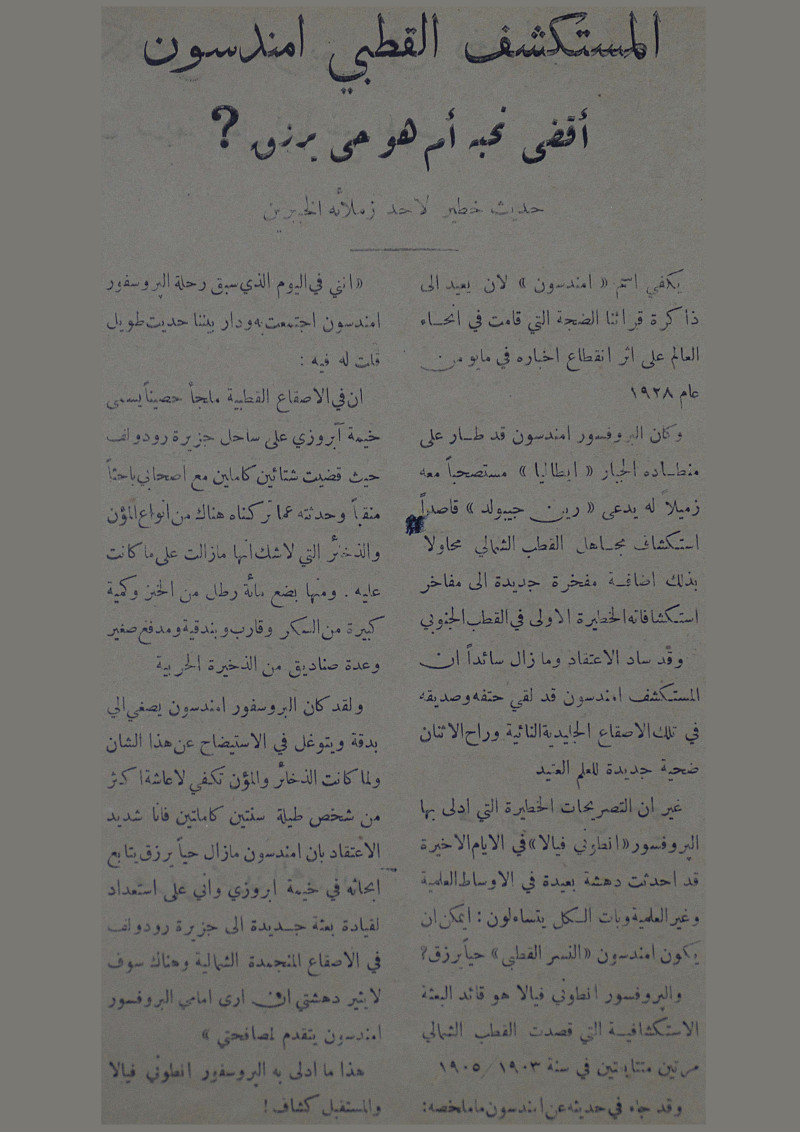 المستكشف القطبي امندسون
أقضى نحبه أم هو حي يرزق ?
حديث خطير لاحد زملائه الخبيرين
يكفي اسم « امندسون » لان يعيد الى
ذاكرة قرائنا الضجة التي قامت في انحاء
العالم على اثر انقطاع اخباره في مايو من
عام ١٩٢٨
وكان البروفسور امندسون قد طار على
منطاده الجبار « ايطاليا » مستصحباً معه
زميلاً له يدعى « رين جيبولد » قاصداً
استكشاف مجاهل القطب الشمالي محاولا
بذلك اضافة مفخرة جديدة الى مفاخر
استكشافاته الخطيرة الاولى في القطب الجنوبي
وقد ساد الاعتقاد وما زال سائداً ان
المستكشف امندسون قد لقي حتفه وصديقه
في تلك الاصقاع الجليدية النائية وراح الاثنان
ضحية جديدة للعلم العنيد
غير ان التصريحات الخطيرة التي ادلى بها
البروفسور « انطوني فيالا » في الايام الاخيرة
قد احدثت دهشة بعيدة في الاوساط العلمية
وغير العلمية وبات الكل يتساءلون : ايمكن ان
يكون امندسون « النسر القطبي » حياً يرزق?
والبروفسور انطوني فيالا هو قائد البعثة
الاستكشافية التي قصدت القطب الشمالي
مرتين متتابتين في سنة ١٩٠٣/١٩٠٥
وقد جاء في حديثه عن امندسون ما ملخصه :
« انني في اليوم الذي سبق رحلة البروسفور
امندسون اجتمعت به ودار بيننا حديث طويل
قلت له فيه :
ان في الاصقاع القطبية ملجأ حصيناً يسمى
خيمة آبروزي على ساحل جزيرة رودولف
حيث قضيت شتائين كاملين مع اصحابي باحثاً
منقباً وحدثته عما تركناه هناك من انواع المؤن
والذخائر التي لاشك انها مازالت على ما كانت
عليه . ومنها بضع مائة رطل من الخبز وكمية
كبيرة من السكر وقارب وبندقية ومدفع صغير
وعدة صناديق من الذخيرة الحربية
ولقد كان البروسفور امندسون يصغي الي
بدقة ويتوغل في الاستيضاح عن هذا الشان
ولما كانت الذخائر والمؤن تكفي لاعاشة اكثر
من شخص طيلة سنتين كاملتين فانا شديد
الاعتقاد بان امندسون مازال حياً يرزق يتابع
ابحاثه في خيمة ابروزي واني على استعداد
لقيادة بعثة جديدة الى جزيرة رودولف
في الاصقاع المنجمدة الشمالية وهناك سوف
لا يثير دهشتي ان ارى امامي البروفسور
امندسون يتقدم لمصافحتي »
هذا ما ادلى به البروسفور انطوني فيالا
والمستقبل كشاف !